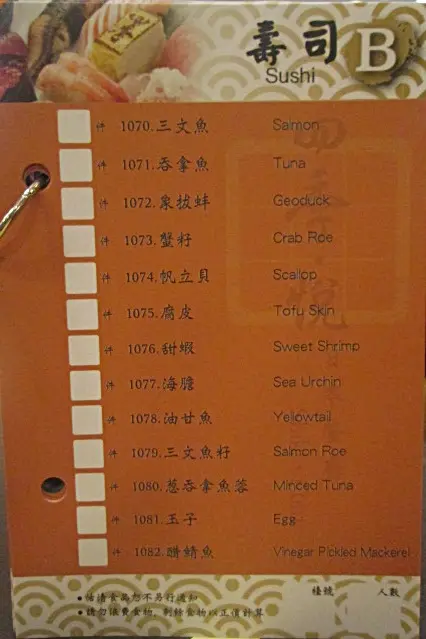 壽司 B
Sushi
件 1070.三文魚 Salmon
件 1071.吞拿魚 Tuna
件 1072.象拔蚌 Geoduck
件 1073.蟹籽 Crab Roe
件 1074.帆立貝 Scallop
件 1075.腐皮 Tofu Skin
件 1076.甜蝦 Sweet Shrimp
件 1077.海膽 Sea Urchin
件 1078.油甘魚 Yellowtail
件 1079.三文魚籽 Salmon Roe
件 1080.葱吞拿魚蓉 Minced Tuna
件 1081.玉子 Egg
件 1082.醋鯖魚 Vinegar Pickled Mackerel
•沽清食品恕不另行通知
•請勿浪費食物，剩餘食物以正價計算
檯號 人數